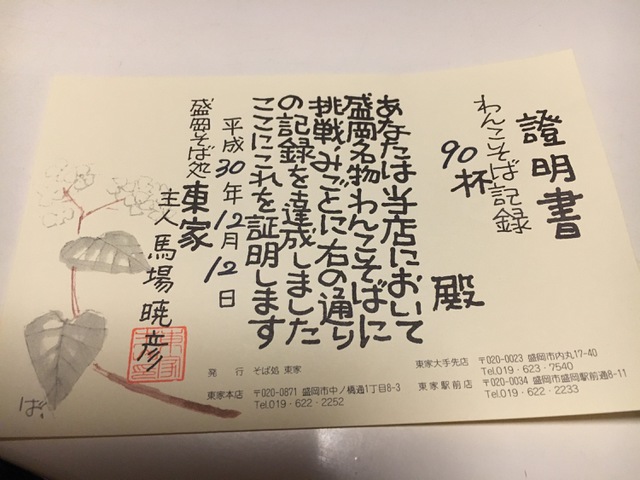 證明書
わんこそば記録
90杯
殿
あなたは当店において
盛岡名物わんこそばに
挑戦、みごとに右の通り
の記録を達成しました
ここにこれを証明します
平成30年12月12日
盛岡そば処 東家
主人 馬場暁彦
発 行 そば処 東家
東家本店 〒020-0871 盛岡市中ノ橋通1丁目8-3
Tel.019・622・2252
東家大手先店 〒020-0023 盛岡市内丸17-40
Tel.019・623・7540
東家駅前店 〒020-0034 盛岡市盛岡駅前通8-11
Tel.019・622・2233
ば.